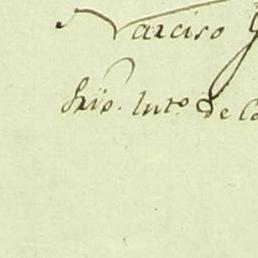 Narciso
Srio. Intº. de